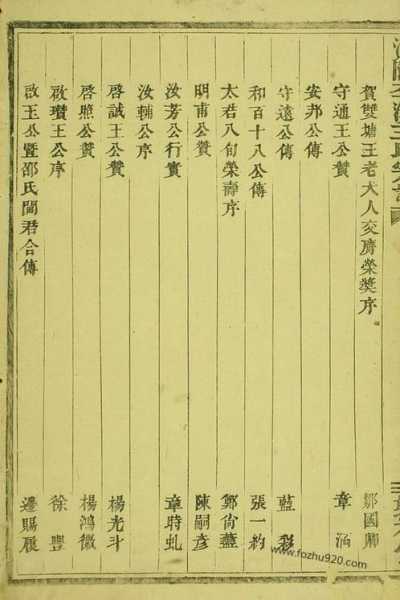 賀雙塘王老大人交廣榮獎序 鄒國
守通王公贊 章涵
安邦公傳
守遠公傳 藍彩
和百十八公傳 張一約
太君八旬榮壽序 鄒尚藎
明甫公贊 陳嗣彥
汝芳公行實 章時虬
汝輔公序
啓誠王公贊 楊光斗
啓照公贊 楊鴻徽
啟瓚王公序 徐豐
啟王公暨邵氏閫君合傳 邊賜履
www.fozhu920.com